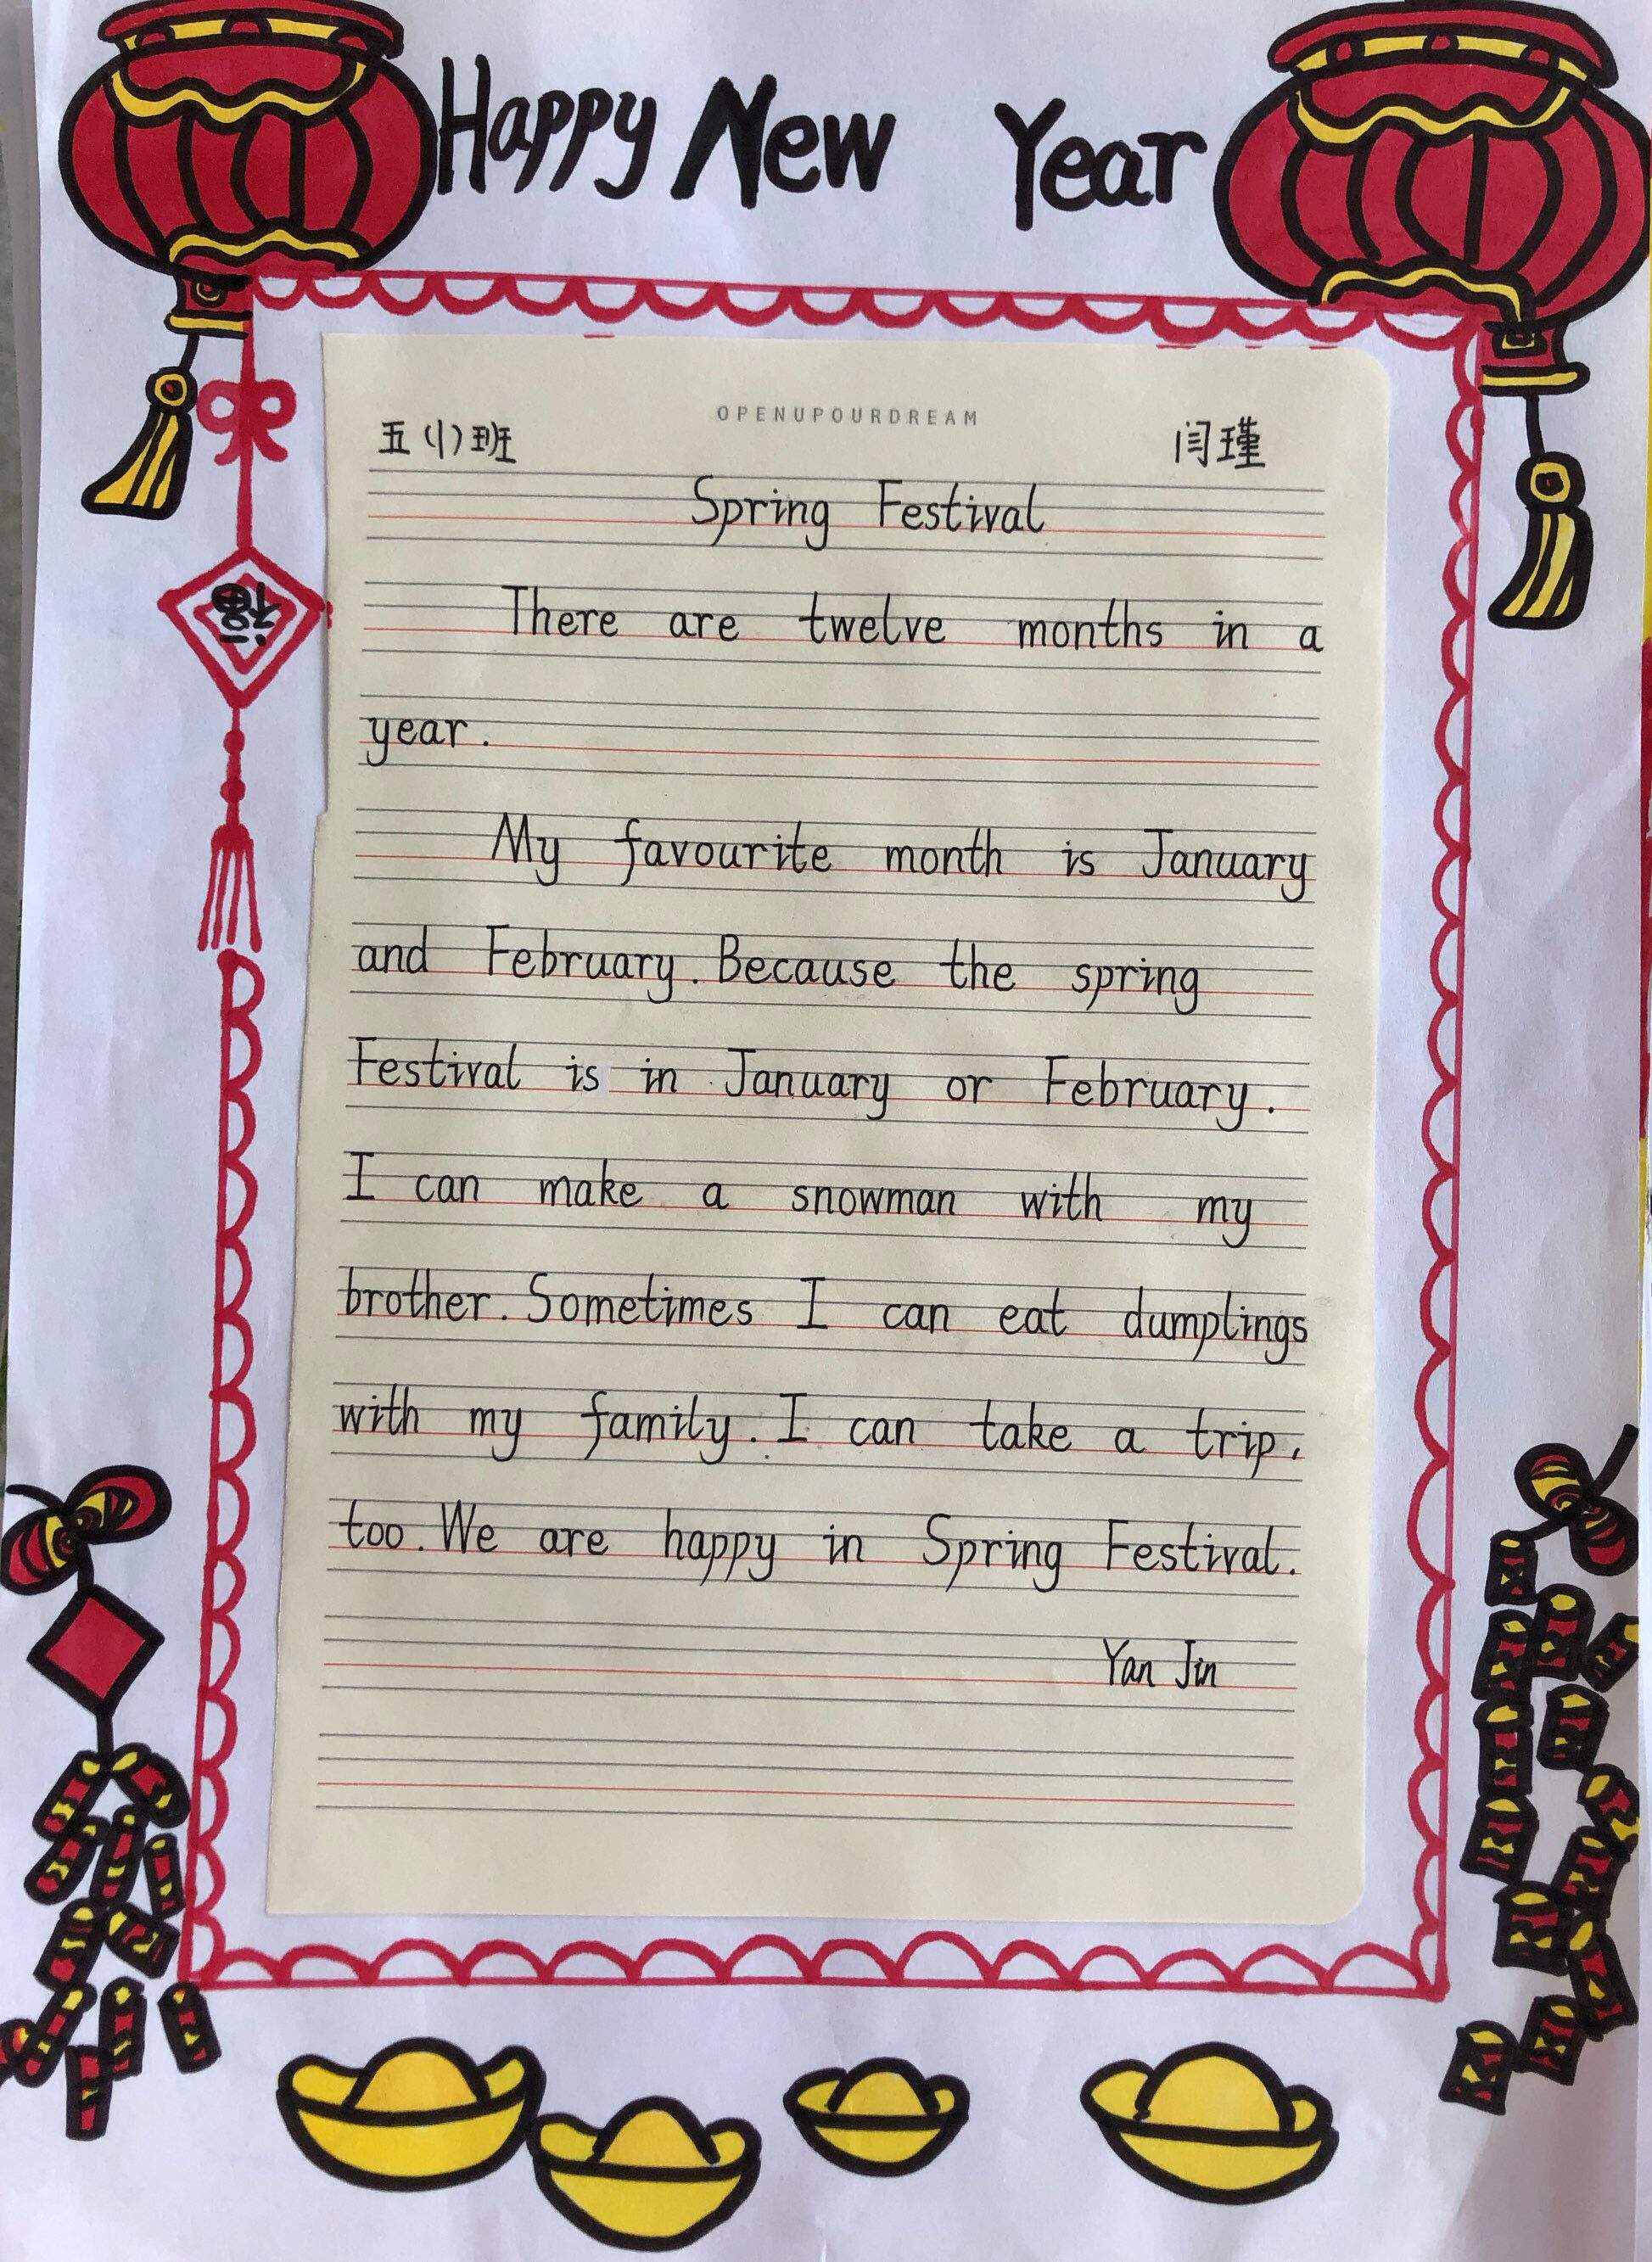 Happy New Year
OPENUPOURDREAM
五(1)班 闫瑾
Spring Festival
There are twelve months in a
year.
My favourite month is January
and February. Because the spring
Festival is in January or February.
I can make a snowman with my
brother. Sometimes I can eat dumplings
with my family. I can take a trip,
too. We are happy in Spring Festival.
Yan Jin
福